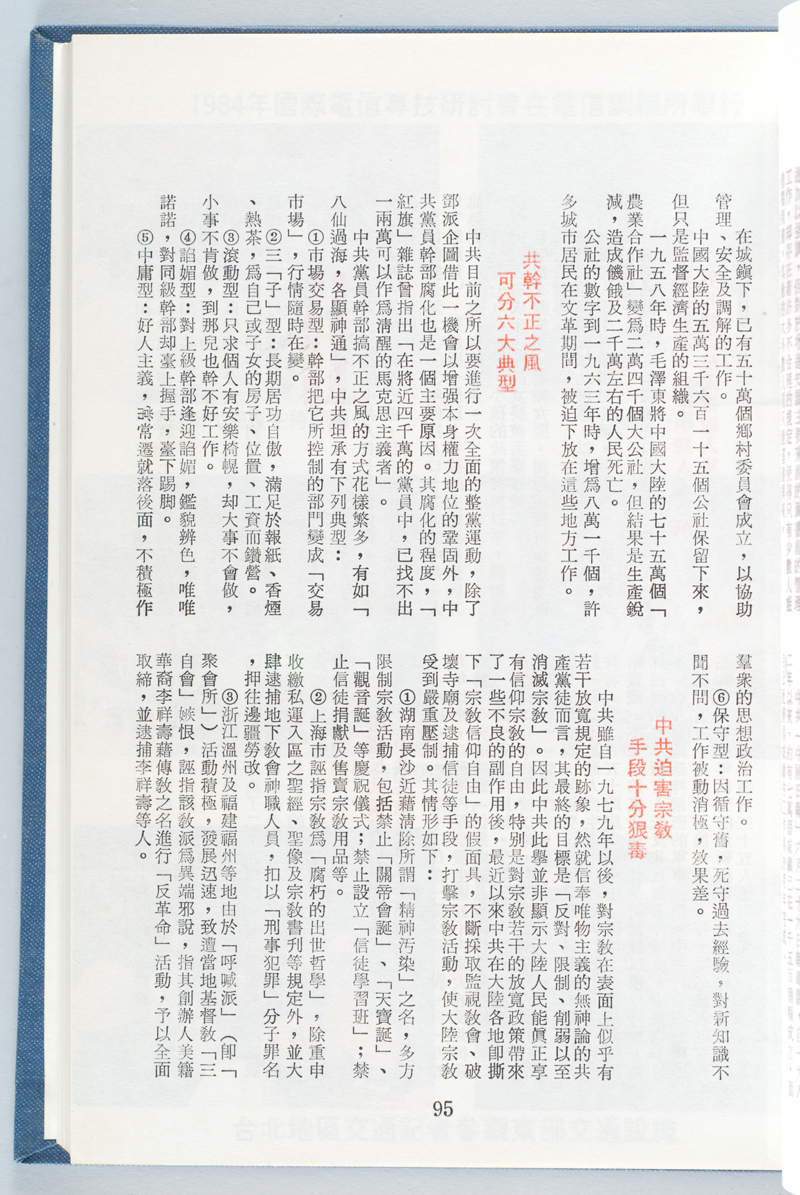 在城鎮下，已有五十萬個鄉村委員會成立，以協助
管理、安全及調解的工作。
中國大陸的五萬三千六百一十五個公社保留下來，
但只是監督經濟生產的組織。
一九五八年時，毛澤東將中國大陸的七十五萬個「
農業合作社」變爲二萬四千個大公社，但結果是生產銳
減，造成饑餓及二千萬左右的人民死亡。
公社的數字到一九六三年時，增爲八萬一千個，許
多城市居民在文革期間，被迫下放在這些地方工作。
共幹不正之風
可分六大典型
中共目前之所以要進行一次全面的整黨運動，除了
鄧派企圖借此一機會以增强本身權力地位的鞏固外，中
共黨員幹部腐化也是一個主要原因。其腐化的程度，「
紅旗」雜誌曾指出「在將近四千萬的黨員中，已找不出
一兩萬可以作爲清醒的馬克思主義者」。
中共黨員幹部搞不正之風的方式花樣繁多，有如「
八仙過海，各顯神通」，中共坦承有下列典型：
①市場交易型：幹部把它所控制的部門變成「交易
市場」，行情隨時在變。
②三「子」型：長期居功自傲，滿足於報紙、香煙
、熱茶，爲自己或子女的房子、位置、工資而鑽營。
③滾動型：只求個人有安樂椅幌，却大事不會做，
小事不肯做，到那兒也幹不好工作。
④諂媚型：對上級幹部逢迎諂媚，鑑貌辨色，唯唯
諾諾，對同級幹部却臺上握手，臺下踢脚。
⑤中庸型：好人主義，常遷就落後面，不積極作
羣衆的思想政治工作。
⑥保守型：因循守舊，死守過去經驗，對新知識不
聞不問，工作被動消極，效果差。
中共迫害宗敎
手段十分狠毒
中共雖自一九七九年以後，對宗敎在表面上似乎有
若干放寬規定的跡象，然就信奉唯物主義的無神論的共
產黨徒而言，其最終的目標是「反對、限制、削弱以至
消滅宗敎」。因此中共此擧並非顯示大陸人民能眞正享
有信仰宗敎的自由，特别是對宗敎若干的放寬政策帶來
了一些不良的副作用後，最近以來中共在大陸各地卽撕
下「宗敎信仰自由」的假面具，不斷採取監視敎會、破
壞寺廟及逮捕信徒等手段，打擊宗敎活動，使大陸宗敎
受到嚴重壓制。其情形如下：
①湖南長沙近藉清除所謂「精神汚染」之名，多方
限制宗敎活動，包括禁止「關帝會誕」、「天寶誕」、
「觀音誕」等慶祝儀式；禁止設立「信徒學習班」；禁
止信徒捐獻及售賣宗敎用品等。
②上海市誣指宗敎爲「腐朽的出世哲學」，除重申
收繳私運入區之聖經、聖像及宗敎書刋等規定外，並大
肆逮捕地下敎會神職人員，扣以「刑事犯罪」分子罪名
，押往邊疆勞改。
③浙江溫州及福建福州等地由於「呼喊派」（卽「
聚會所」）活動積極，發展迅速，致遭當地基督敎「三
自會」嫉恨，誣指該敎派爲異端邪說，指其創辦人美籍
華裔李祥壽藉傳敎之名進行「反革命」活動，予以全面
取締，並逮捕李祥壽等人。
95